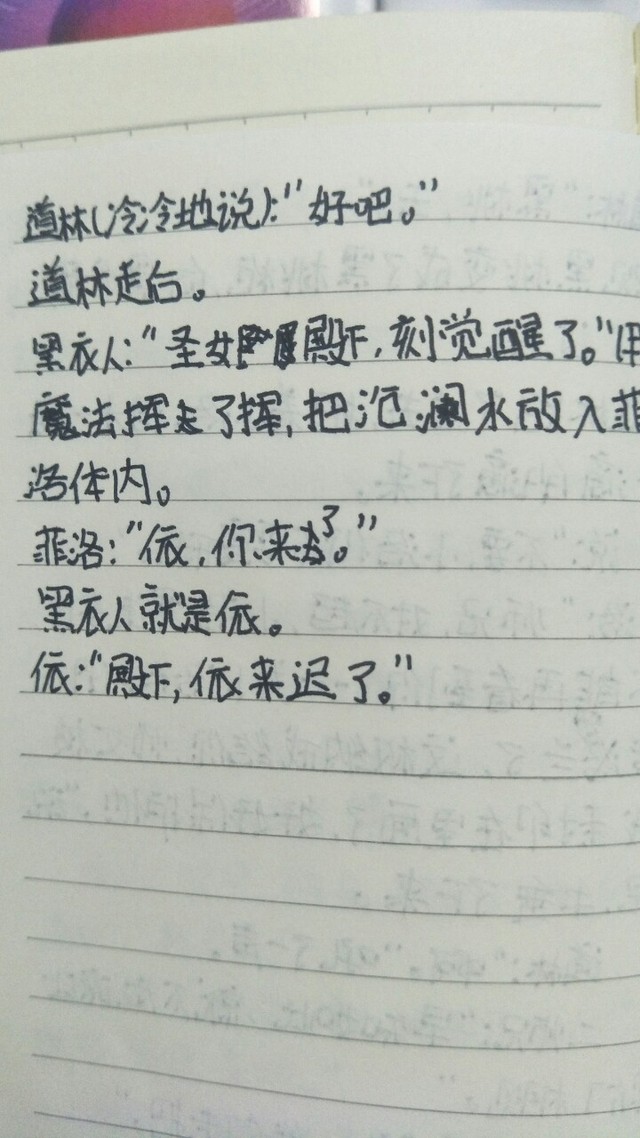 道林(冷冷地说):"好吧。"
道林走后。
黑衣人:"圣女殿下,刻觉醒了。"(用
魔法挥去了挥,把氾澜水放入菲
洛体内。
菲洛:"依,你来了。"
黑衣人就是依。
依:"殿下,依来迟了。"